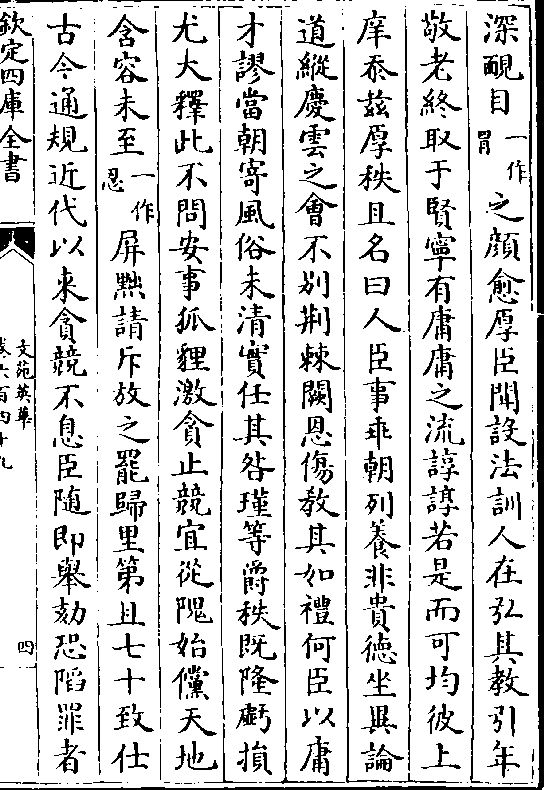 深覥目一作冒之顔愈厚臣聞設法訓人在弘其教引年
敬老終取于賢寧有庸庸之流諄諄若是而可均彼上
庠忝兹厚秩且名曰人臣事乖朝列養非貴德坐異論
道縱慶雲之會不别荆棘闕恩傷教其如禮何臣以庸
才謬當朝寄風俗未清實任其咎瑾等爵秩既隆虧損
尤大釋此不問安事狐貍激貪止競宜從隗始儻天地
含容未至一作忍屏黜請斥放之罷歸里第且七十致仕
古今通規近代以來貪競不息臣隨即舉劾恐陷罪者
欽定四庫全書
文苑英華
卷六百四十九
四